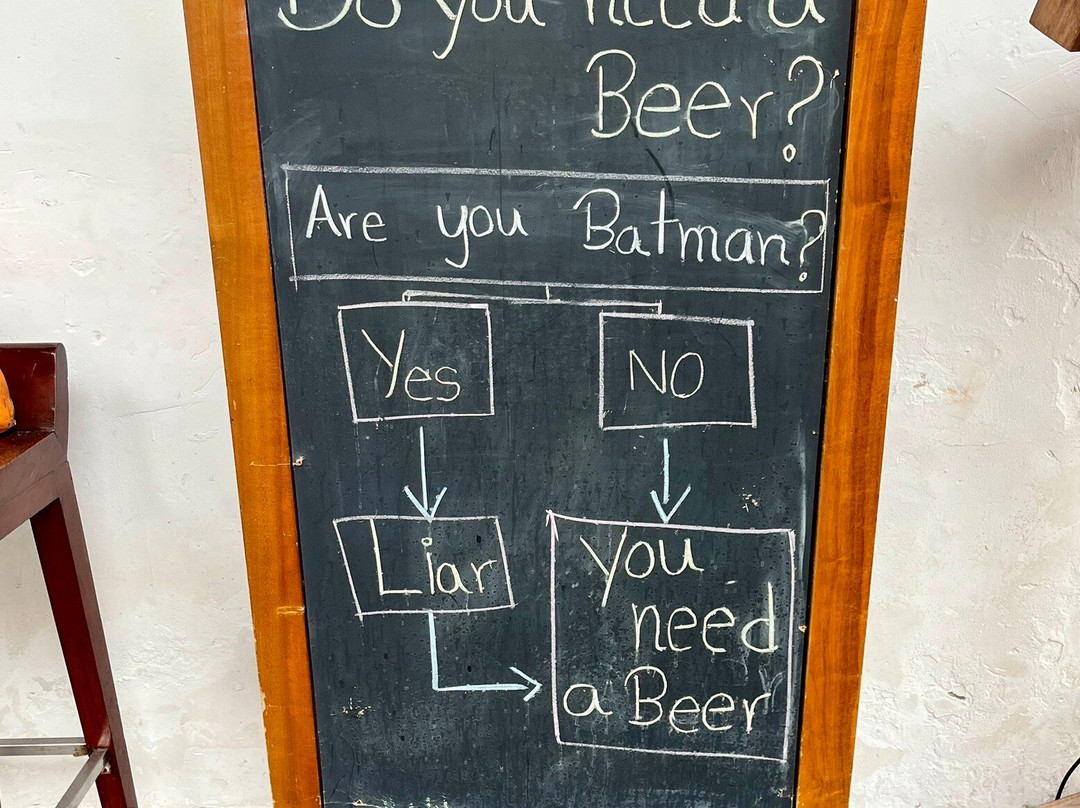 Do you need a
Beer?
Are you Batman?
Yes
NO
Liar
you
need
a Beer